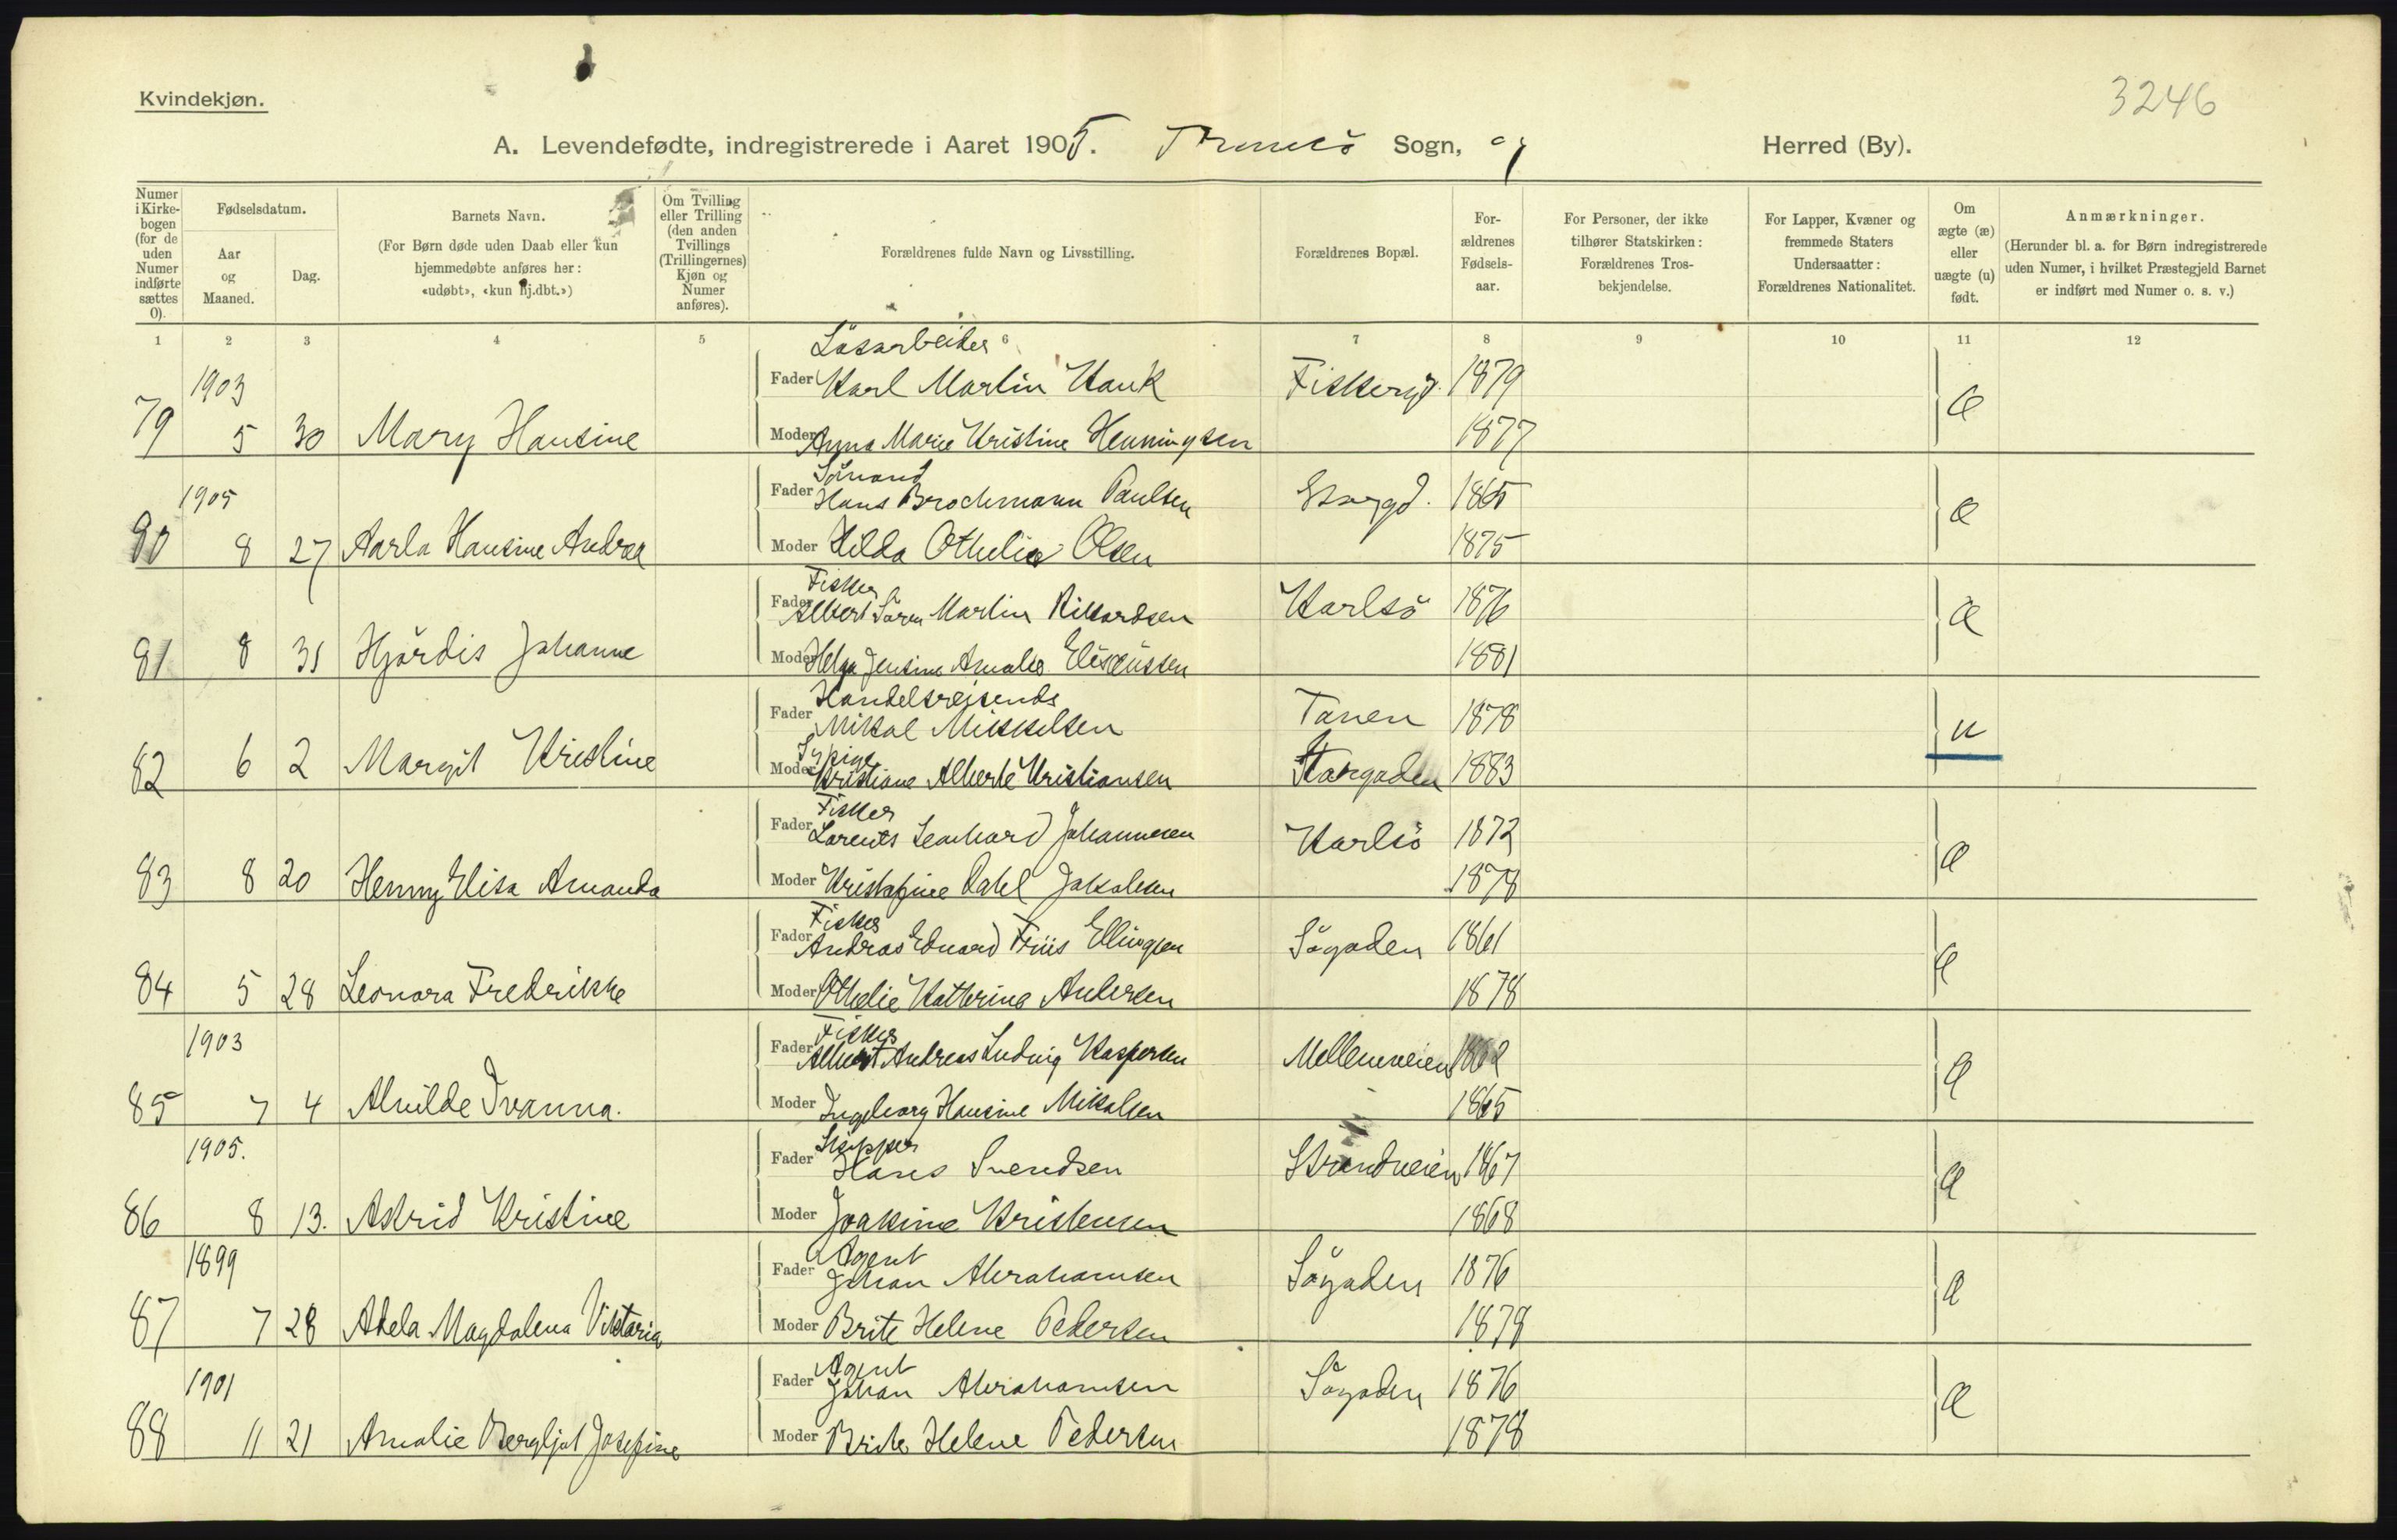 3246
Kvindekjøn.
A. Levendefødte, indregistrerede i Aaret 1905. Tromsö Sogn, og Herred (By).
Numer i Kirkebogen (for de uden Numer indførte sættes 0).
Fødselsdatum.
Aar og Maaned.
Dag.
Barnets Navn.
(For Børn døde uden Daab eller kun hjemmedøbte anføres her: «udøbt», «kun hj.dbt.»)
Om Tvilling eller Trilling (den anden Tvillings (Trillingernes) Kjøn og Numer anføres).
Forældrenes fulde Navn og Livsstilling.
Forældrenes Bopæl.
Forældrenes Fødselsaar.
For Personer, der ikke tilhører Statskirken: Forældrenes Trosbekjendelse.
For Lapper, Kvæner og fremmede Staters Undersaatter: Forældrenes Nationalitet.
Om ægte (æ) eller uægte (u) født.
Anmærkninger.
(Herunder bl. a. for Børn indregistrerede uden Numer, i hvilket Præstegjeld Barnet er indført med Numer o. s. v.)
1 2 3 4 5 6 7 8 9 10 11 12
Løsarbeider
1903 Fader Karl Martin Hauk Fiskergd. 1879 æ
79 5 30 Mary Hansine Moder Anna Marie Kristine Henningsen 1877
Sömand
1905 Fader Hans Brochmann Paulsen Storgd. 1865 æ
80 8 27 Aarla Hansine Andrea Moder Hilda Othelie Olsen 1875
Fisker
Fader Albert Sören Martin Rikardsen Karlsö 1876 æ
81 8 31 Hjördis Johanne Moder Helga Jensine Amalie Eliseussen 1881
Handelsreisende
Fader Mikal Mikkelsen Tanen 1878 u
Sypige
82 6 2 Margit Kristine Moder Kristiane Alberte Kristiansen Storgaden 1883
Fisker
Fader Lorents Leonhard Johannesen Karlsö 1872 æ
83 8 20 Henny Elisa Amanda Moder Kristofine Dahl Jakobsen 1878
Fisker
Fader Andreas Eduard Friis Ellingsen Sögaden 1861 æ
84 5 28 Leonora Fredrikke Moder Othelie Katherina Andersen 1878
Fisker
1903 Fader Albert Andreas Ludvig Kaspersen Mellemveien 1862 æ
85 7 4 Alvilde Ivanna. Moder Ingeborg Hansine Mikalsen 1865
Skipper
1905. Fader Hans Svendsen Strandveien 1867 æ
86 8 13. Astrid Kristine Moder Joakine Kristensen 1868
Agent
1899 Fader Johan Abrahamsen Sögaden 1876 æ
87 7 28 Adela Magdalena Viktoria Moder Brite Helene Pedersen 1878
Agent
1901 Fader Johan Abrahamsen Sögaden 1876 æ
88 11 21 Amalie Bergljot Josefine Moder Brite Helene Pedersen 1878